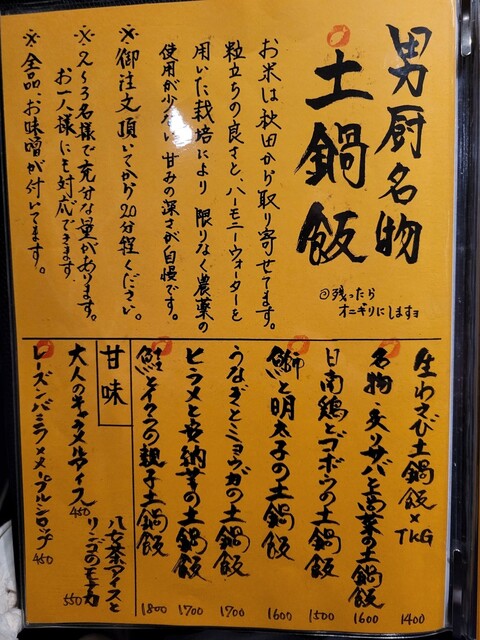 男厨名物
土鍋飯
◎残ったら
オニギリにしますヨ
お米は秋田から取り寄せてます。
粒立ちの良さと、ハーモニーウォーターを
用いた栽培により 限りなく農薬の
使用が少ない 甘みの深さが自慢です。
※御注文頂いてから20分程ください。
※2〜3名様で充分な量があります。
お一人様にも対応できます。
※全品、お味噌が付いてます。
生わさび土鍋飯×TKG 1400
名物 炙りサバと高菜の土鍋飯 1600
日南鶏とゴボウの土鍋飯 1500
鰤と明太子の土鍋飯 1600
うなぎとミョウガの土鍋飯 1700
ヒラメと安納芋の土鍋飯 1700
鮭とイクラの親子土鍋飯 1800
甘味
八女茶アイスと
リンゴのモナカ 550
大人のキャラメルアイス 450
レーズンバニラ×メープルシロップ 450